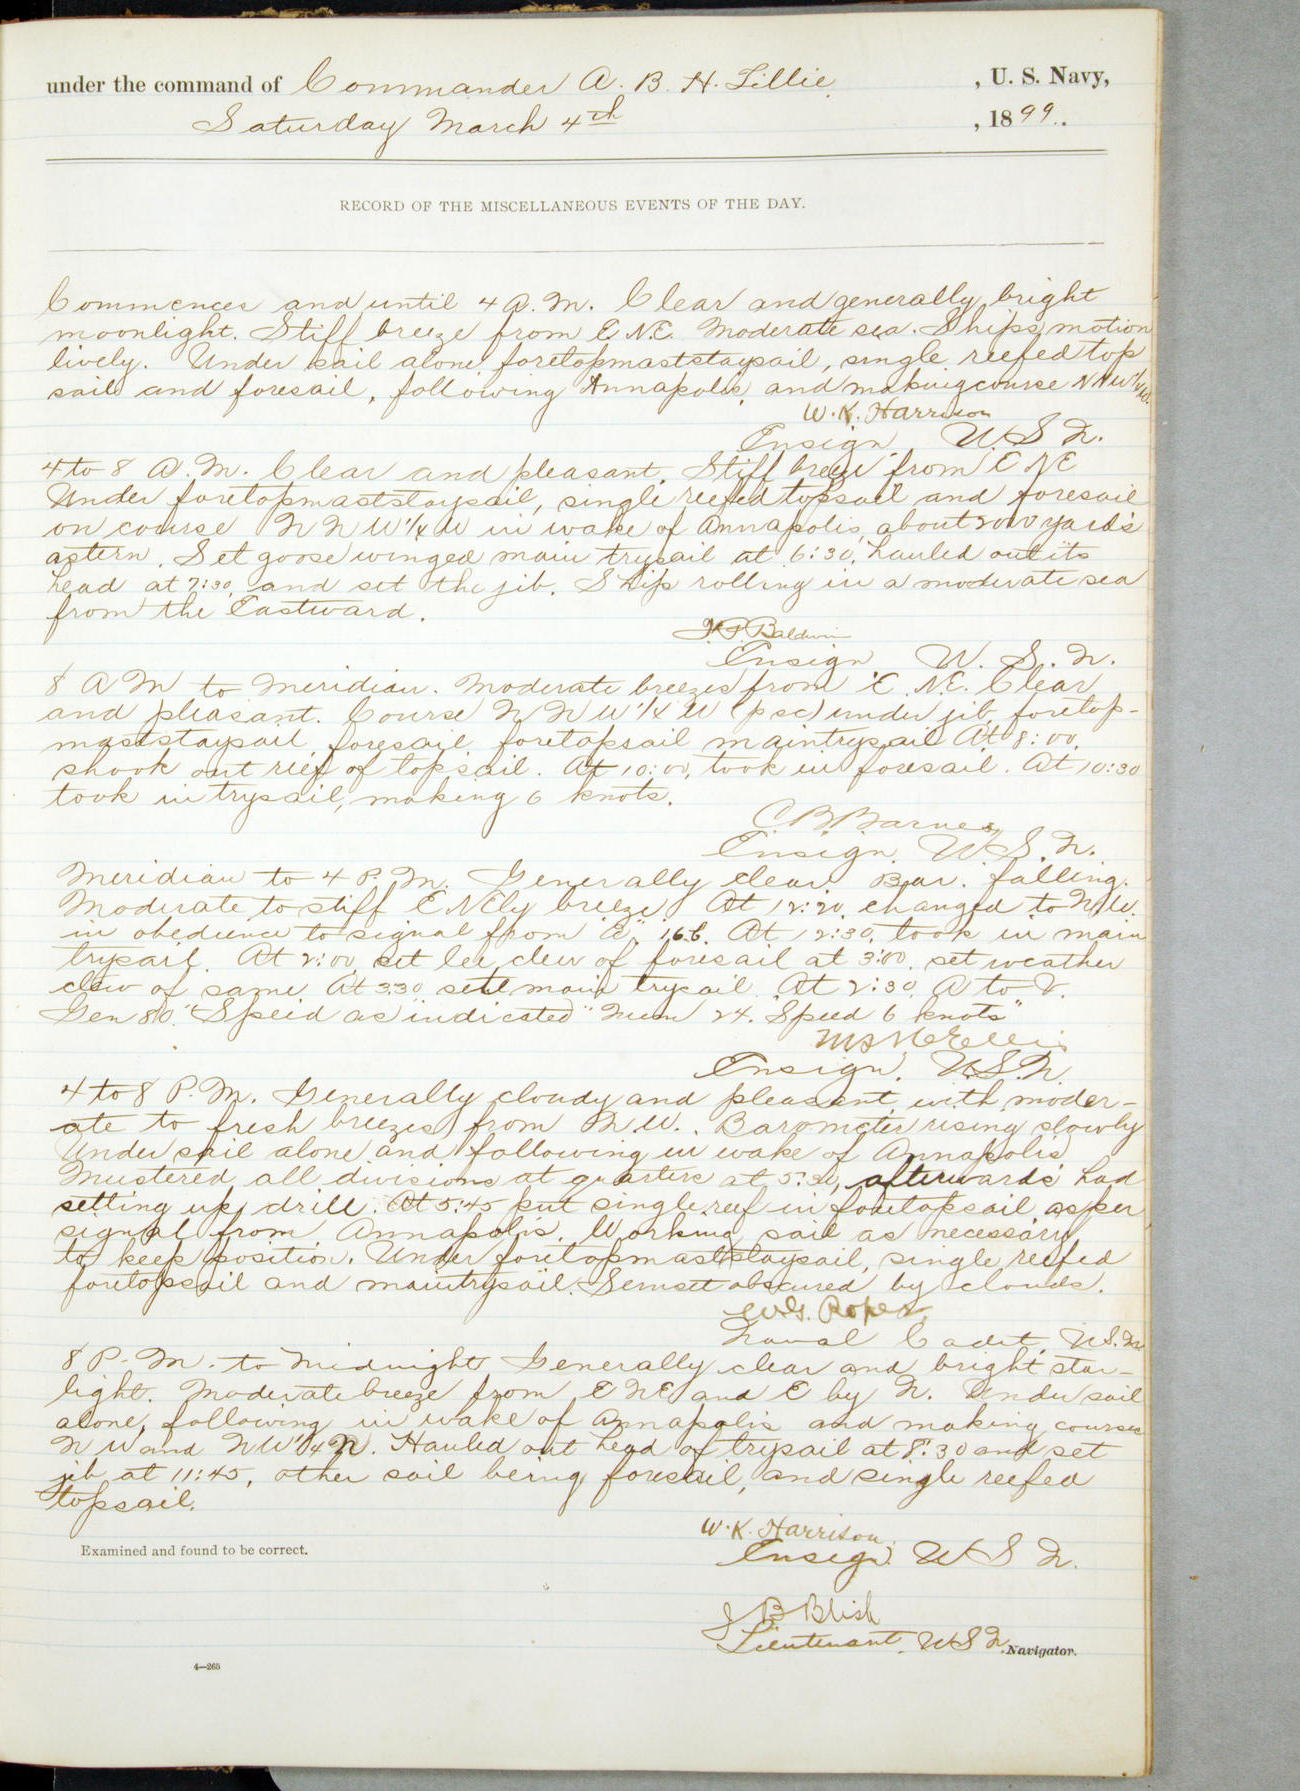 under the command of Commander A. B. H. Lillie, U. S. Navy,
Saturday March 4th, 1899.
RECORD OF THE MISCELLANEOUS EVENTS OF THE DAY.
Commences and until 4 A.M. Clear and generally bright
moonlight. Stiff breeze from E N.E. Moderate sea. Ships motion
lively. Under sail alone, foretopmaststaysail, single reefed top
sail and foresail, following Annapolis, and making course NNW1/4W.
W. K. Harrison
Ensign, U.S N.
4 to 8 A.M. Clear and pleasant. Stiff breeze from E NE
Under foretopmaststaysail, single reefed topsail and foresail
on course N N W 1/4 W in wake of Annapolis, about 200 yards
astern. Set goose winged main trysail at 6:30, hauled out its
head at 7:30, and set the jib. Ship rolling in a moderate sea
from the Eastward.
Baldwin
Ensign U. S. N.
8 A M to Meridian. Moderate breezes from E. N.E. Clear
and pleasant. Course N N W 1/4 W (p s c) under jib, foretop-
maststaysail, foresail, foretopsail maintrysail At 8:00,
shook out reef of topsail. At 10:00, took in foresail. At 10:30
took in trysail, making 6 knots.
C B Barnes
Ensign U.S.N.
Meridian to 4 P.M. Generally clear. Bar. falling.
Moderate to stiff E NEly breeze. At 12:20, changed to N.W.
in obedience to signal from "A", 166. At 12:30, took in main
trysail. At 2:00, set lee clew of foresail at 3:00, set weather
clew of same. At 3:30 set main trysail. At 2:30, A to V.
Gen 810. "Speed as indicated" Num 24. Speed 6 knots"
Ensign. U.S.N.
4 to 8 P.M. Generally cloudy and pleasant, with moder-
ate to fresh breezes from N.W.. Barometer rising slowly
Under sail alone and following in wake of Annapolis
Mustered all divisions at quarters at 5:30, afterwards had
setting up drill. At 5:45 put single reef in foretopsail as per
signal from Annapolis. Working sail as necessary
to keep position. Under foretopmaststaysail, single reefed
foretopsail and maintrysail. Sunset obscured by clouds.
W.G. Roper,
Naval Cadet, U.S.N
8 P.M. to Midnight Generally clear and bright star-
light. Moderate breeze from E NE and E by N. Under sail
alone, following in wake of Annapolis and making courses
N W and NW 1/4 N. Hauled out head of trysail at 8:30 and set
jib at 11:45, other sail being foresail, and single reefed
topsail.
W. K. Harrison,
Ensign U S N.
Examined and found to be correct.
J B Blish
Lieutenant, U S N, Navigator.
4—265